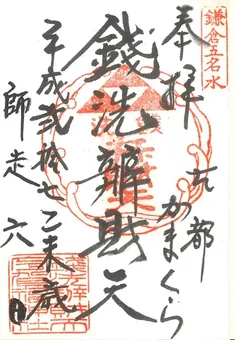 鎌倉五名水
奉拝
古都
かまくら
錢洗辨財天
平成弐拾七乙未歳
師走六日